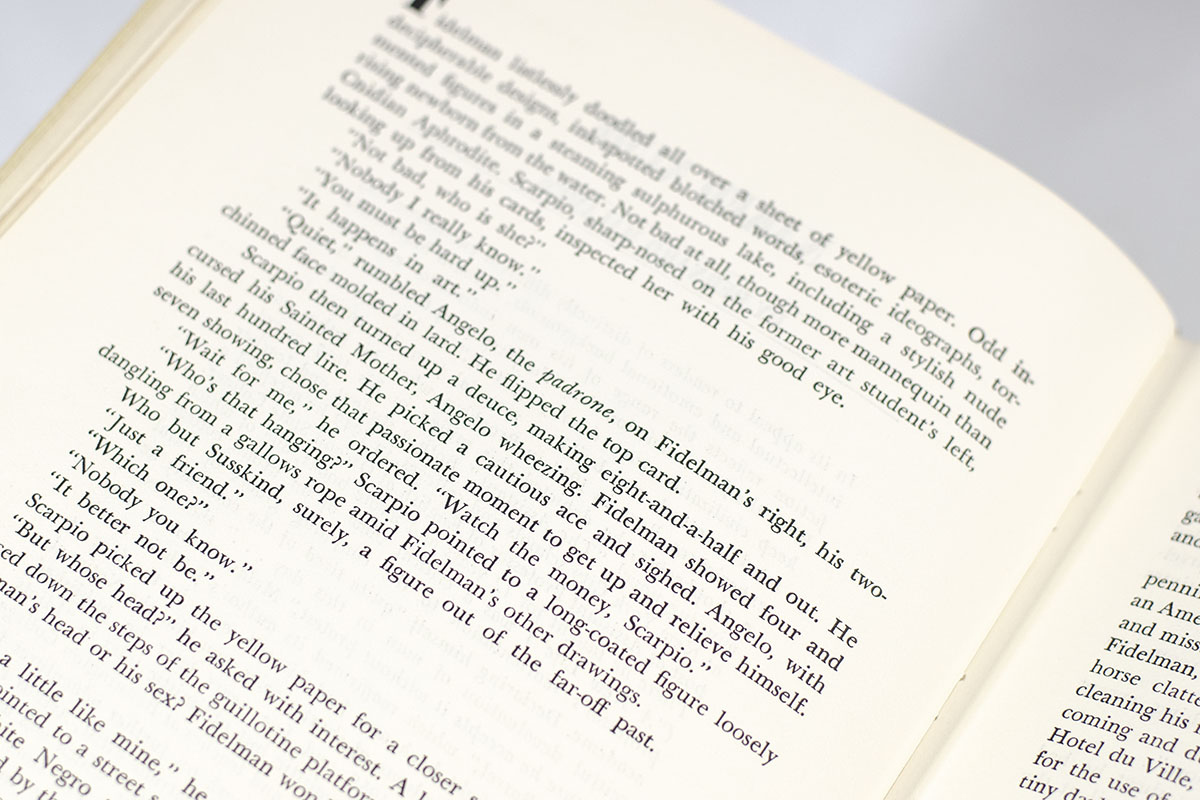 Fidelman listlessly doodled all over a sheet of yellow paper. Odd in-
decipherable designs, ink-spotted blotched words, esoteric ideographs, tor-
mented figures in a steaming sulphurous lake, including a stylish nude
rising newborn from the water. Not bad at all, though more mannequin than
Cnidian Aphrodite. Scarpio, sharp-nosed on the former art student's left,
looking up from his cards, inspected her with his good eye.
"Not bad, who is she?"
"Nobody I really know."
"You must be hard up."
"It happens in art."
"Quiet," rumbled Angelo, the padrone, on Fidelman's right, his two-
chinned face molded in lard. He flipped the top card.
Scarpio then turned up a deuce, making eight-and-a-half and out. He
cursed his Sainted Mother, Angelo wheezing. Fidelman showed four and
his last hundred lire. He picked a cautious ace and sighed. Angelo, with
seven showing, chose that passionate moment to get up and relieve himself.
"Wait for me," he ordered. "Watch the money, Scarpio."
"Who's that hanging?" Scarpio pointed to a long-coated figure loosely
dangling from a gallows rope amid Fidelman's other drawings.
Who but Susskind, surely, a figure out of the far-off past.
"Just a friend."
"Which one?"
"Nobody you know."
"It better not be."
Scarpio picked up the yellow paper for a closer
"But whose head?" he asked with interest. A
down the steps of the guillotine platform
head or his sex? Fidelman
a little like mine," he
to a street
Negro
by
and
an
and
Fidelman,
horse
cleaning his
coming and
Hotel du Ville,
for the use of
tiny